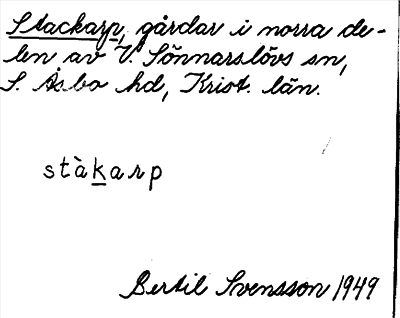 Stackarp, gårdar i norra de-
len av V. Sönnarslövs sn,
S. Åsbo hd, Krist. län.
stàkarp
Bertil Svensson 1949